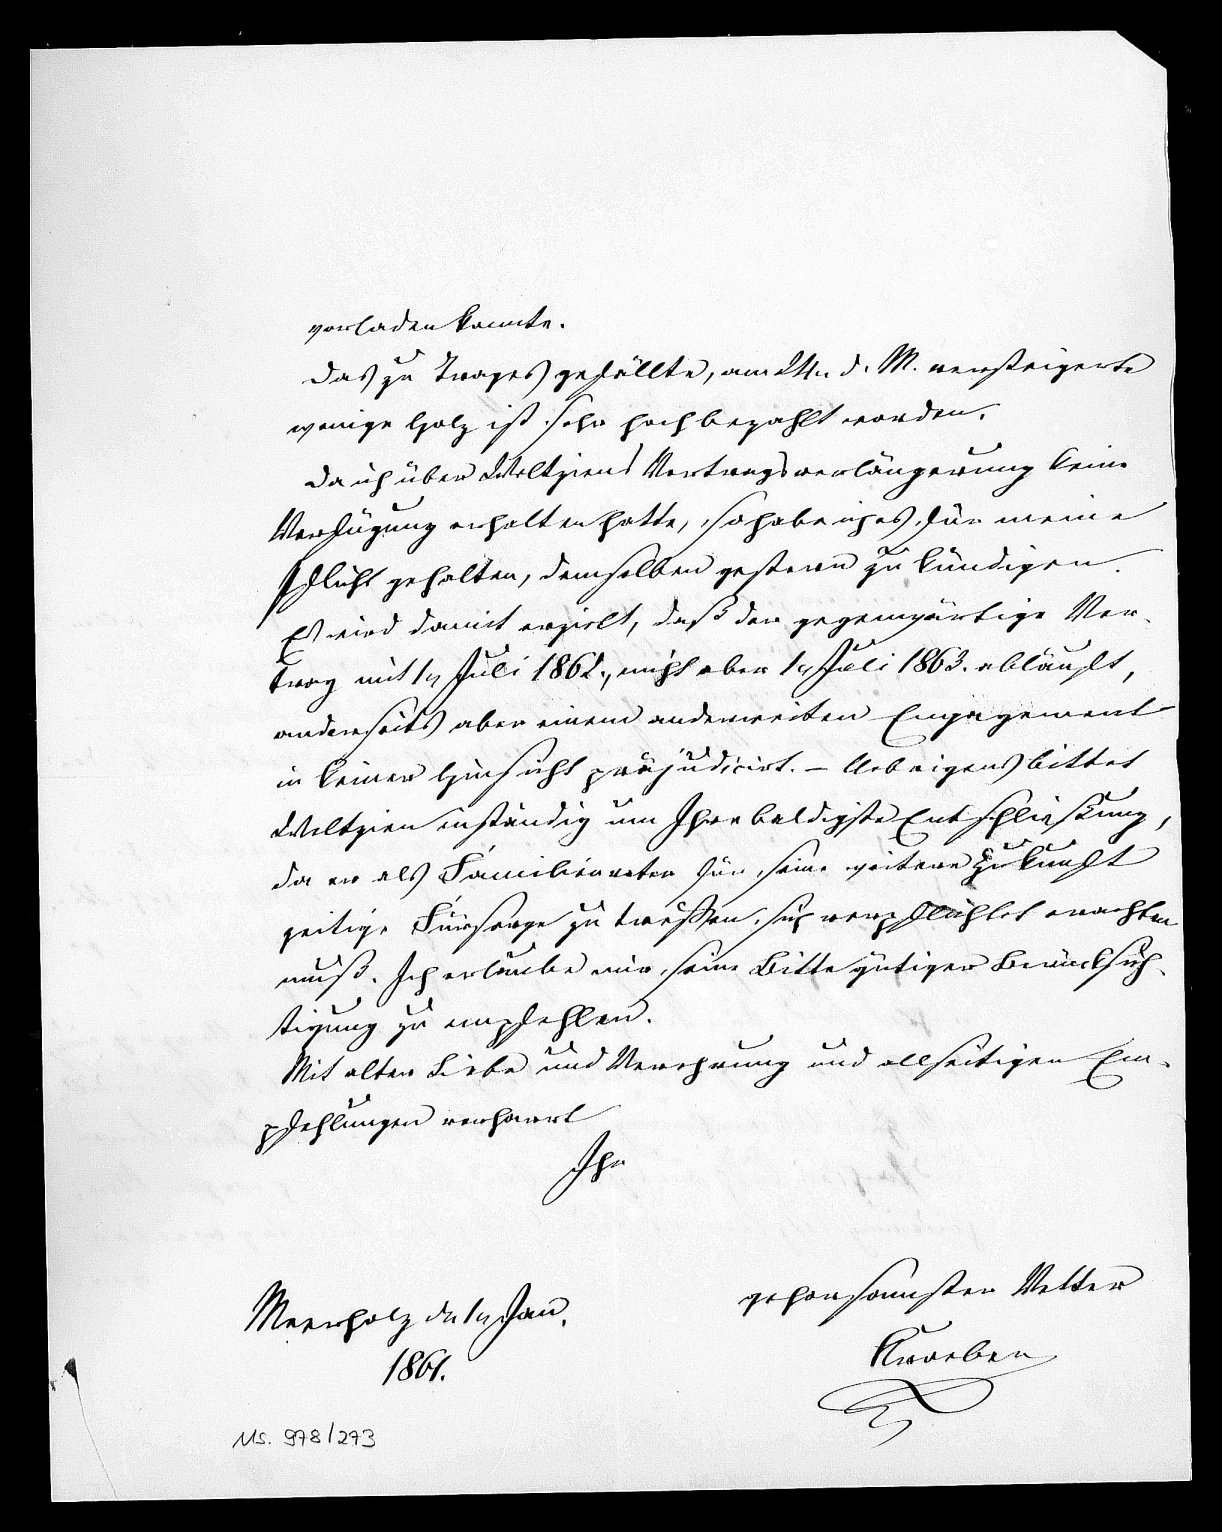 vorladen konnte.
Das zu Trages gefällte, am 24n d. M. versteigerte
wenige Holz ist sehr hoch bezahlt worden.
Da ich über Weltziens Vertragsverlängerung keine
Verfügung erhalten hatte, so habe ich es für meine
Pflicht gehalten, demselben gestern zu kündigen.
Es wird damit erzielt, daß der gegenwärtige Ver-
trag mit 1n Juli 1862., nicht aber 1n Juli 1863. abläuft,
anderseits aber einem anderweiten Engagement
in keiner Hinsicht präjudicirt. – Uebrigens bittet
Weltzien inständig um Ihre baldigste Entschließung,
da er als Familienvater für seine weitere Zukunft
zeitige Fürsorge zu treffen sich verpflichtet erachten
muß. Ich erlaube mir seine Bitte gütiger Berücksich-
tigung zu empfehlen.
Mit alter Liebe und Verehrung und allseitigen Em-
pfehlungen verharrt
Ihr
gehorsamster Vetter
Meerholz dn 1n Jan.
1861.
Ms. 978/273